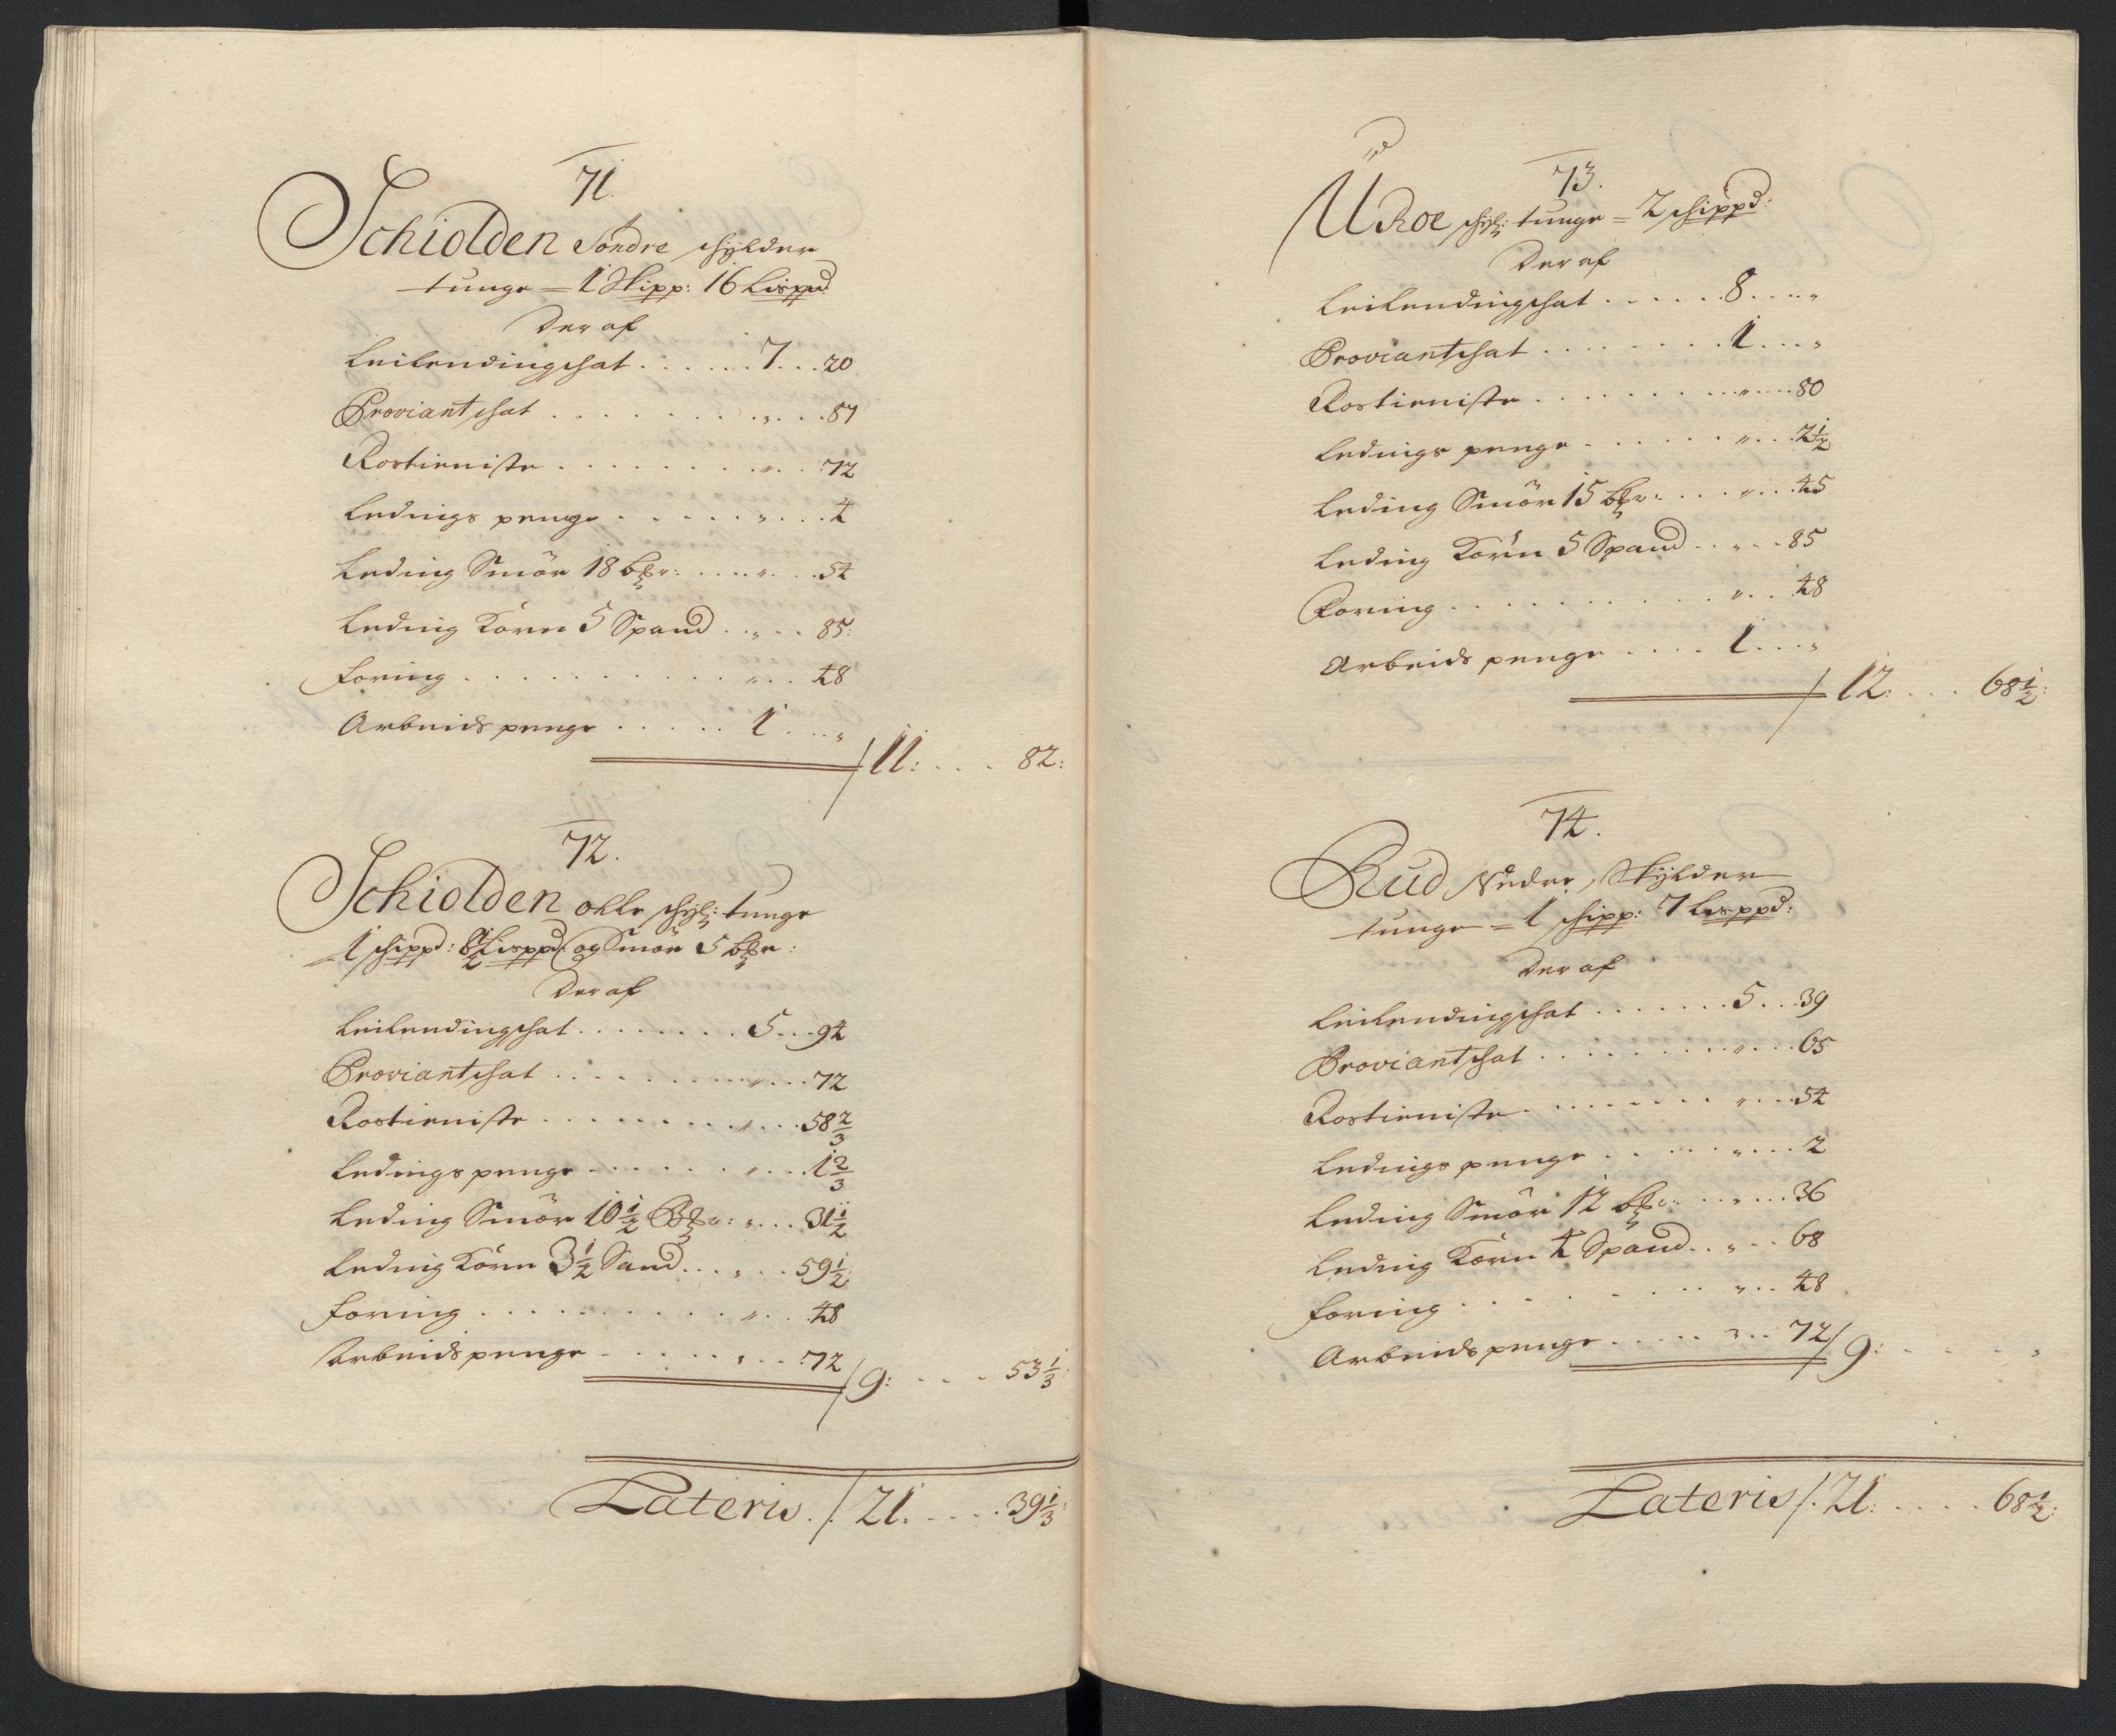 71.
Schiolden Söndre schylder
tunge = 1 Skipp: 16 Lisppd
Der af
Leilendingschat . . . . . . 7 . . . 20
Proviantschat . . . . . . . . „ . . . 87
Rostieniste . . . . . . . . „ . . . 72
Ledings penge . . . . . . „ . . . 4
Leding Smör 18 bpr: . . . . „ . . . 54
Leding Korn 5 Spand . . „ . . 85:
Foring . . . . . . . . . . . „ . . . 48
Arbeids penge . . . . . 1 . . . „
/ 11: . . . 82:
72.
Schiolden olle schyl: tunge
1 schippd: 8½ Lisppd: og Smör 5 bpr:
Der af
Leilendingschat . . . . . . . 5 . . . 94
Proviantschat . . . . . . . . „ . . . 72
Rostieniste . . . . . . . . „ . . . 58 2/3
Ledings penge . . . . . . „ . . . 1 2/3
Leding Smör 10½ Bpr: „ . . . 31½
Leding Korn 3½ Sand . . . „ . . . 59½
Foring . . . . . . . . . . „ . . . 48
Arbeids penge . . . . . „ . . . 72
/ 9: . . . . 53 1/3:
Lateris . / 21. . . . . . 39 1/3:
73.
URoe schyl: tunge = 2 schippd:
Der af
Leilendingschat . . . . . . 8 . . . „
Proviantschat . . . . . . . . 1 . . . „
Rostieniste . . . . . . . . „ . . . 80
Ledings penge . . . . . . „ . . . 2½
Leding Smör 15 bpr: . . . „ . . . 45
Leding Korn 5 Spand . . „ . . 85
Foring . . . . . . . . . . „ . . . 48
Arbeids penge . . . . 1 . . . „
/ 12: . . . 68½:
74.
Rud Nedre, Skylder
tunge = 1 schipp: 7 Lisppd:
Der af
Leilendingschat . . . . . . . 5 . . . 39
Proviantschat . . . . . . . . „ . . . 65
Rostieniste . . . . . . . . „ . . . 54
Ledings penge . . . . . . „ . . . 2
Leding Smör 12 bpr: . . . „ . . . 36
Leding Korn 4 Spand . . „ . . 68
Foring . . . . . . . . . „ . . . 48
Arbeids penge . . . . . „ . . 72
/ 9: . . . . . „
Lateris /. 21: . . . . 68½: